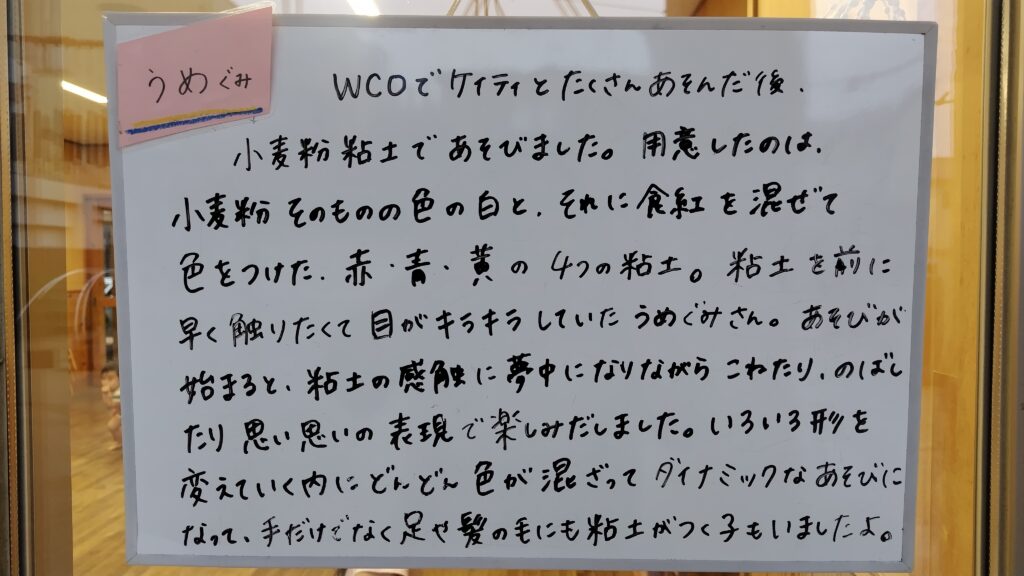 うめぐみ
WCOでケイティとたくさんあそんだ後、
小麦粉粘土であそびました。用意したのは、
小麦粉そのものの色の白と、それに食紅を混ぜて
色をつけた、赤・青・黄の4つの粘土。粘土を前に
早く触りたくて目がキラキラしていたうめぐみさん。あそびが
始まると、粘土の感触に夢中になりながらこねたり、のばし
たり思い思いの表現で楽しみだしました。いろいろ形を
変えていく内にどんどん色が混ざってダイナミックなあそびに
なって、手だけでなく足や髪の毛にも粘土がつく子もいましたよ。